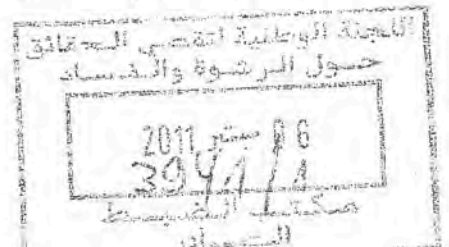 اللجنة الوطنية لتقصي الحقائق
حول الرشوة والفساد
06 سبتمبر 2011
مكتب الضبط